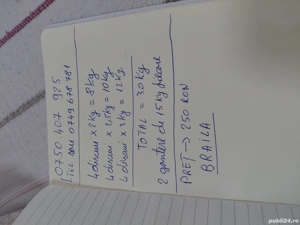 0750 407 925
Tel sau 0749 678 781
4 discuri x 2 kg = 8 kg
4 discuri x 2,5 kg = 10 kg
4 discuri x 3 kg = 12 kg
TOTAL = 30 kg
2 gantere de 15 kg fiecare
PRET → 250 RON
BRAILA
publi24.ro